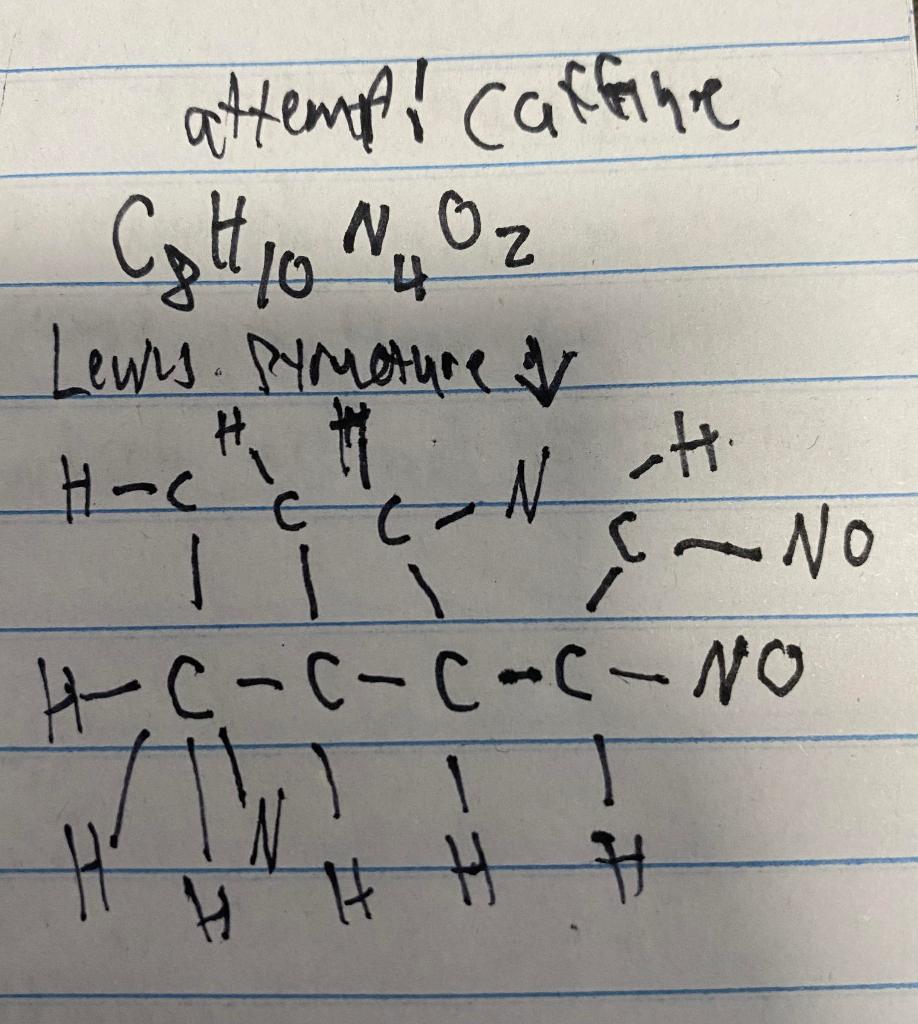 attempt! Caffeine
C₈H₁₀N₄O₂
Lewis Structure ↓
H H
H – C C C – N – H
C – NO
H – C – C – C – C – NO
N
H H H H H